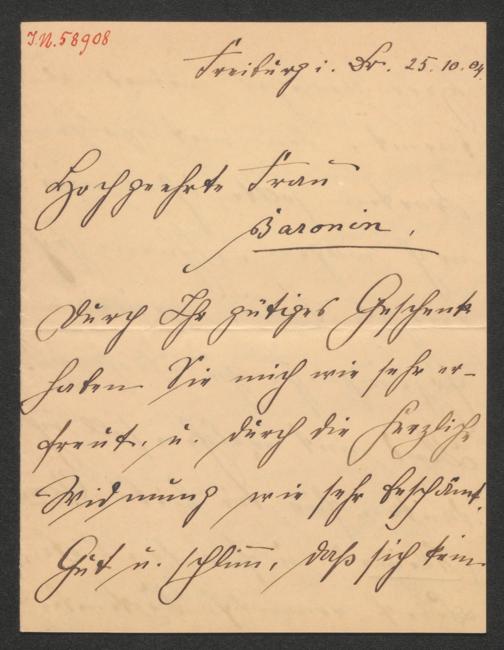 I.N. 58908
Freiburg i. Br. 25. 10. 04.
Hochgeehrte Frau
Baronin,
Durch Ihr gütiges Geschenk
haben Sie mich wie sehr er-
freut, u. durch die herzliche
Widmung wie sehr beschämt.
Gut u. schlimm, daß sich kein